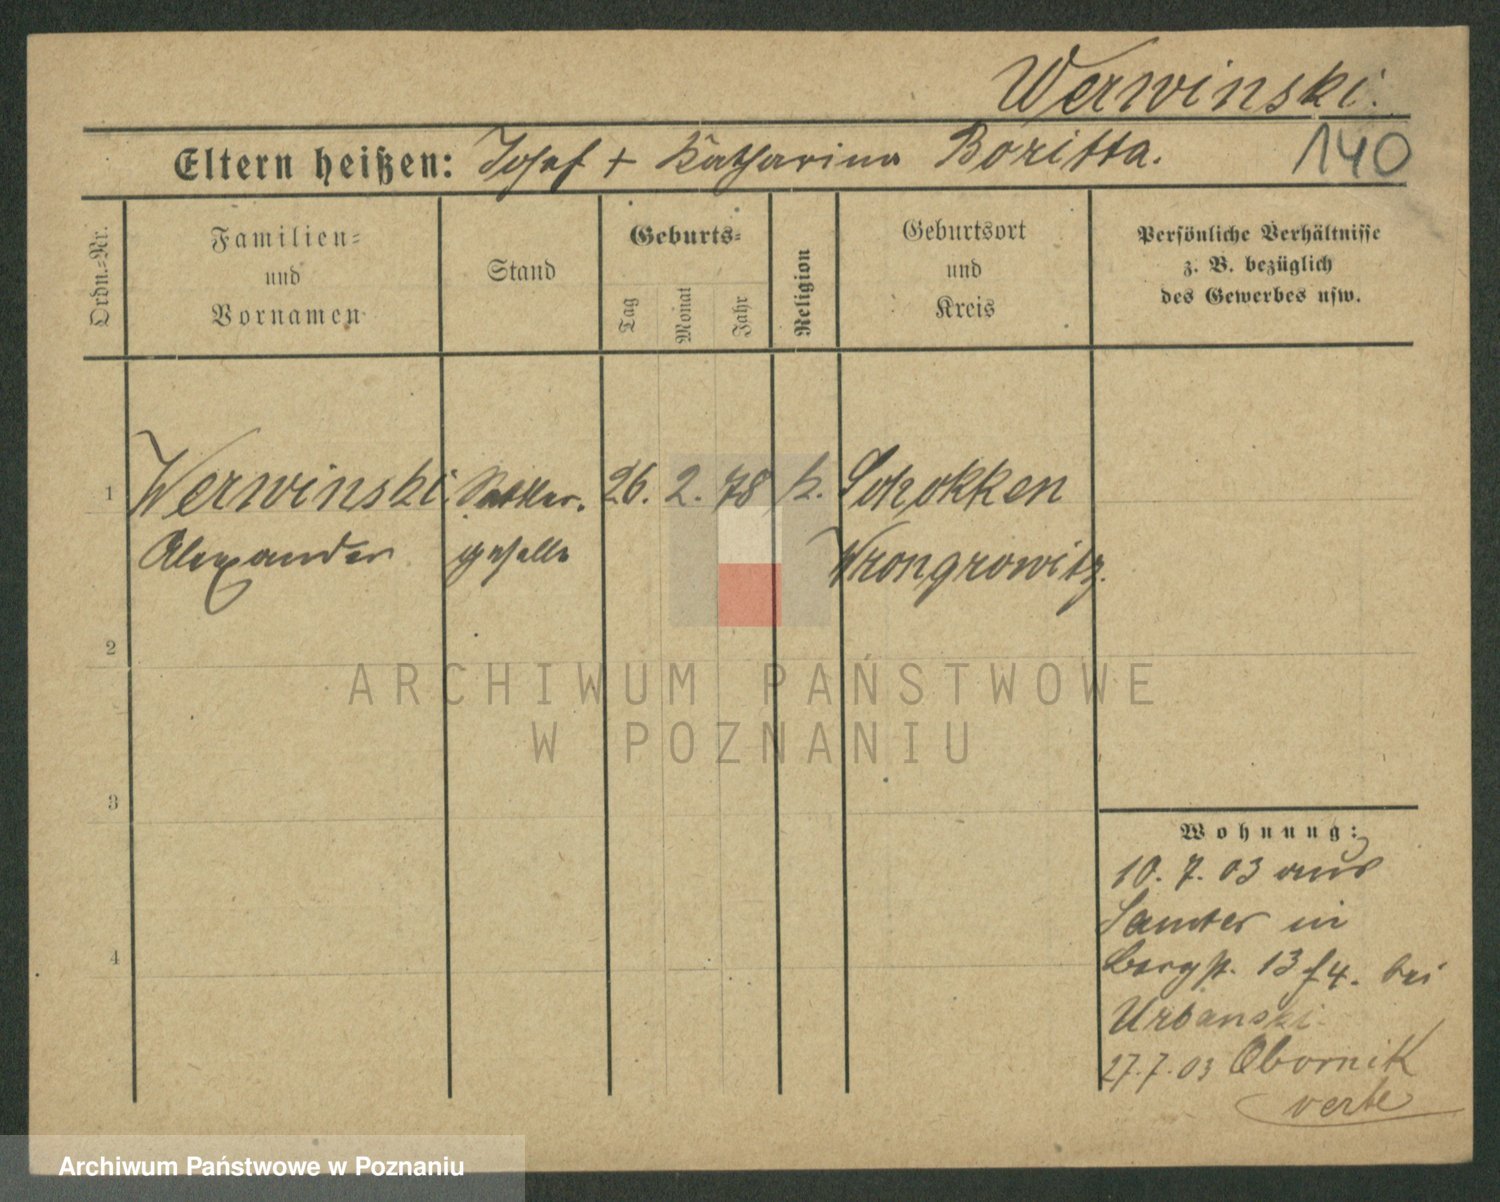 Werwinski.
Eltern heißen: Josef + Katharina Boritta.
140
Ordn.=Nr.
Familien=
und
Vornamen
Stand
Geburts=
Tag
Monat
Jahr
Religion
Geburtsort
und
Kreis
Persönliche Verhältnisse
z. B. bezüglich
des Gewerbes usw.
1 Werwinski Sattler. 26. 2. 78 k. Schokken
Alexander geselle Wrongrowitz.
2
3
4
Wohnung:
10. 7. 03 aus
Samter in
Bergst. 13 f4. bei
Urbanski
27.7.03 Obornik
verte
ARCHIWUM PAŃSTWOWE
W POZNANIU
Archiwum Państwowe w Poznaniu